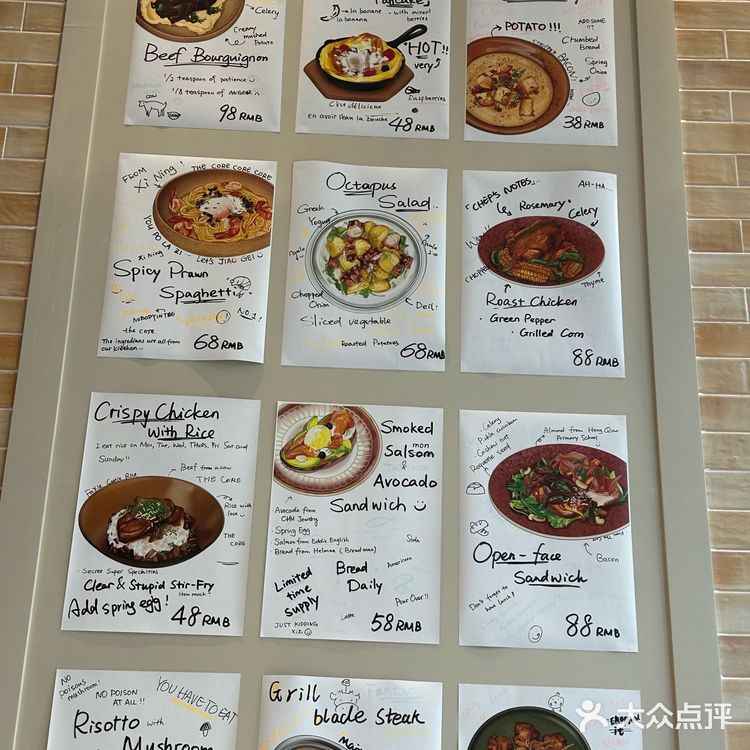 Celery
Creamy
mashed
Potato
Beef Bourguignon
1/2 teaspoon of patience
1/8 teaspoon of ANGER
COW
98 RMB
Pancake
la banane
la banana
with mixed
berries
"HOT"!!
very
Raspberries
C'est délicieux
en avoir l'eau à la bouche
48 RMB
POTATO!!!
ADD SOME!!
Chumbed
Bread
BACON
Spring
Onion
38 RMB
FROM
Xi Ning!
THE CORE CORE CORE
YOU PO LA ZI
Xi NING
LET'S JIAO GEI
Spicy Prawn
Spaghetti
NO.1!
the core
The ingredians are all from
our kitchen
68 RMB
Octapus
Salad..
Greek
Yogurt
Chopped
Onion
Deil!
Sliced vegetable
Roasted Potatoes
68 RMB
"CHEF'S NOTES"
AH-HA...
Rosemary
Celery
Thyme
Roast Chicken
· Green Pepper
· Grilled Corn
88 RMB
Crispy Chicken
with Rice
I eat rice on Mon, Tue, Wed, Thurs, Fri. Sat and
Sunday!!
Beef from a cow
THE CORE
Rice with
love
THE
CORE
· Secree Super Specialties
Clear & Stupid Stir-Fry
How much?
Add spring egg!
48 RMB
Smoked
Salsom
mon
&
Avocado
Sandwich
Avocado from
CHU Jewelry
Spring Egg
- Salmon from Eddie English
- Bread from Helmna (Bread man)
Soda
American
Limited
time
supply
Bread
Daily
Pour Over!!
Latte
JUST KIDDING
xixi
58 RMB
Celery
Pickle cucumber
Cashew nut
Roquette seed
Almond from Hong Qiao
Primary School
RED
Bacon
Open-face
Sandwich
Don't forget to
have lunch!
88 RMB
NO
POISOUS
mushroom!
NO POISON
AT ALL!!
YOU HAVE TO EAT
Risotto with
Mushroom
Grill
blade Steak
Fantastic
Main
it
大众点评